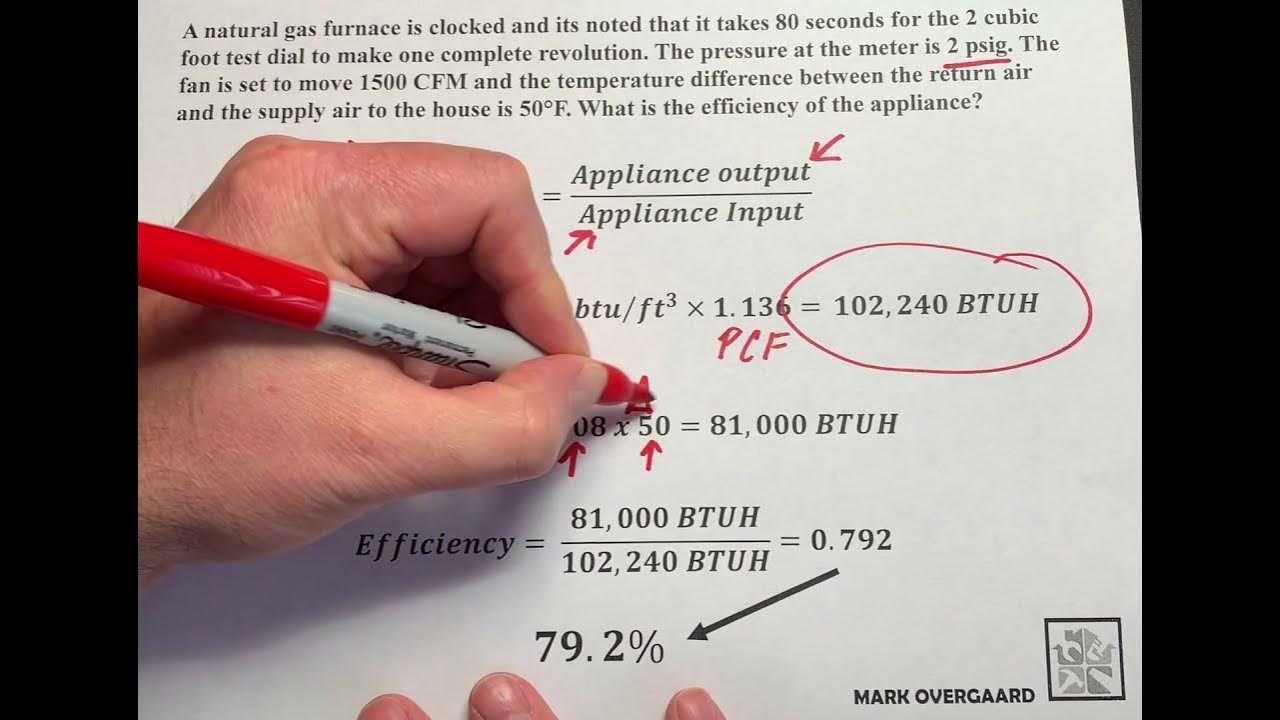 A natural gas furnace is clocked and its noted that it takes 80 seconds for the 2 cubic
foot test dial to make one complete revolution. The pressure at the meter is 2 psig. The
fan is set to move 1500 CFM and the temperature difference between the return air
and the supply air to the house is 50°F. What is the efficiency of the appliance?
= Appliance output
Appliance Input
btu/ft³ × 1.136 = 102,240 BTUH
PCF
08 x 50 = 81,000 BTUH
81,000 BTUH
Efficiency = = 0.792
102,240 BTUH
79.2%
MARK OVERGAARD